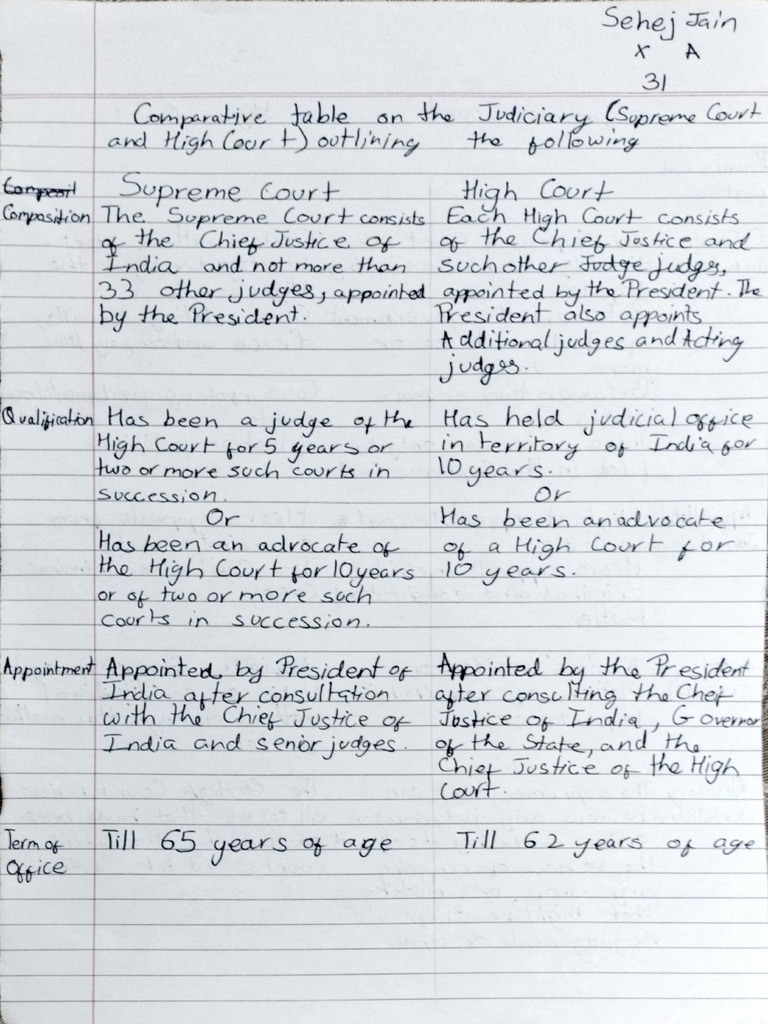 Sehej Jain
X A
31
Comparative table on the Judiciary (Supreme Court
and High Court) outlining the following
Composit Supreme Court High Court
Composition The Supreme Court consists Each High Court consists
of the Chief Justice of of the Chief Justice and
India and not more than such other Judge judges,
33 other judges, appointed appointed by the President. The
by the President. President also appoints
Additional judges and Acting
judges.
Qualification Has been a judge of the Has held judicial office
High Court for 5 years or in territory of India for
two or more such courts in 10 years.
succession. Or
Or Has been an advocate
Has been an advocate of of a High Court for
the High Court for 10 years 10 years.
or of two or more such
courts in succession.
Appointment Appointed by President of Appointed by the President
India after consultation after consulting the Cheif
with the Chief Justice of Justice of India, Governor
India and senior judges. of the State, and the
Chief Justice of the High
Court.
Term of Till 65 years of age Till 62 years of age
Office